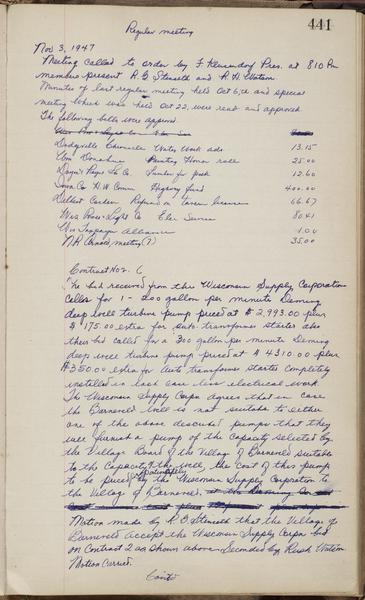 441
Regular meeting
Nov 3, 1947
Meeting called to order by F. Pres. at 8 10 Pm
members present R G Stenseld and R H Watson
Minutes of last regular meeting held Oct 6th and special
meeting which was held Oct 22, were read and approved.
The following bills were approved.
Dodgeville Chronicle Water Work ads 13.15
Wm Donahue Painting Honor role 25.00
Lumber for park 12.60
Iowa Co H.W. Comm Highway fund 400.00
Delbert Refund on tavern license 66.67
Wis Power & Light Co Elec Service 80.41
Wis Taxpayer Alliance 1.00
N.R. meeting (7) 35.00
Contract No 2.
The bid received from the Wisconsin Supply Corporation
Calls for 1 - 200 gallon per minute Deming
deep well turbine pump priced at $2,993.00 plus
$175.00 extra for auto. transformer starter also
their bid called for a 300 gallon per minute Deming
deep well turbine pump priced at $4310.00 plus
$350.00 extra for Auto transformer starter completely
installed in each case less electrical work.
The Wisconsin Supply Corpn agrees that in case
the Barneveld Well is not suitable to either
one of the above described pumps that they
will furnish a pump of the capacity selected by
the Village Board of the Village of Barneveld suitable
to the capacity of the well, the cost of this pump
to be priced by the Wisconsin Supply Corporation to
the Village of Barneveld,
Motion made by R G Stenseld that the Village of
Barneveld accept the Wisconsin Supply Corpn bid
on Contract 2 as shown above. Seconded by Rush Watson
Motion Carried.
Cont'd